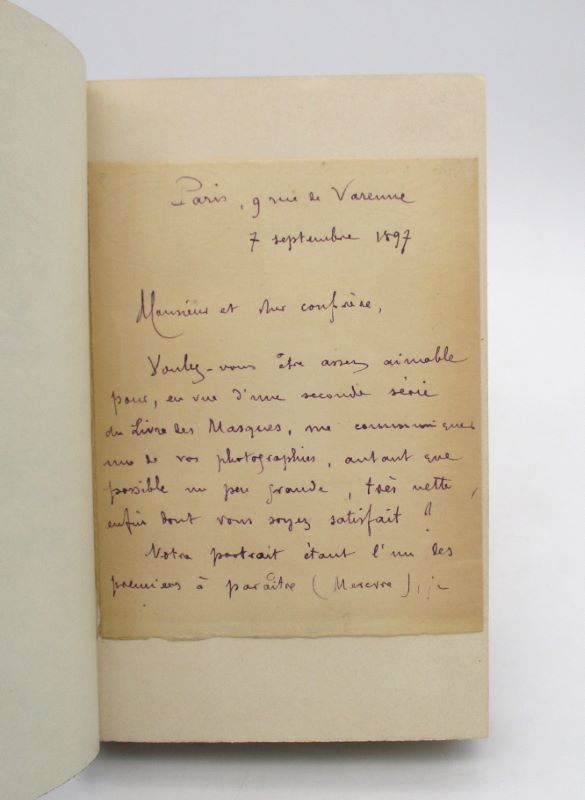 Paris, 9 rue de Varenne
7 septembre 1897
Monsieur et cher confrère,
Voulez-vous être assez aimable
pour, en vue d'une seconde série
du Livre des Masques, me communiquer
une de vos photographies, autant que
possible un peu grande, très nette,
enfin dont vous soyez satisfait ?
Votre portrait étant l'un des
premiers à paraître (Mercure), je